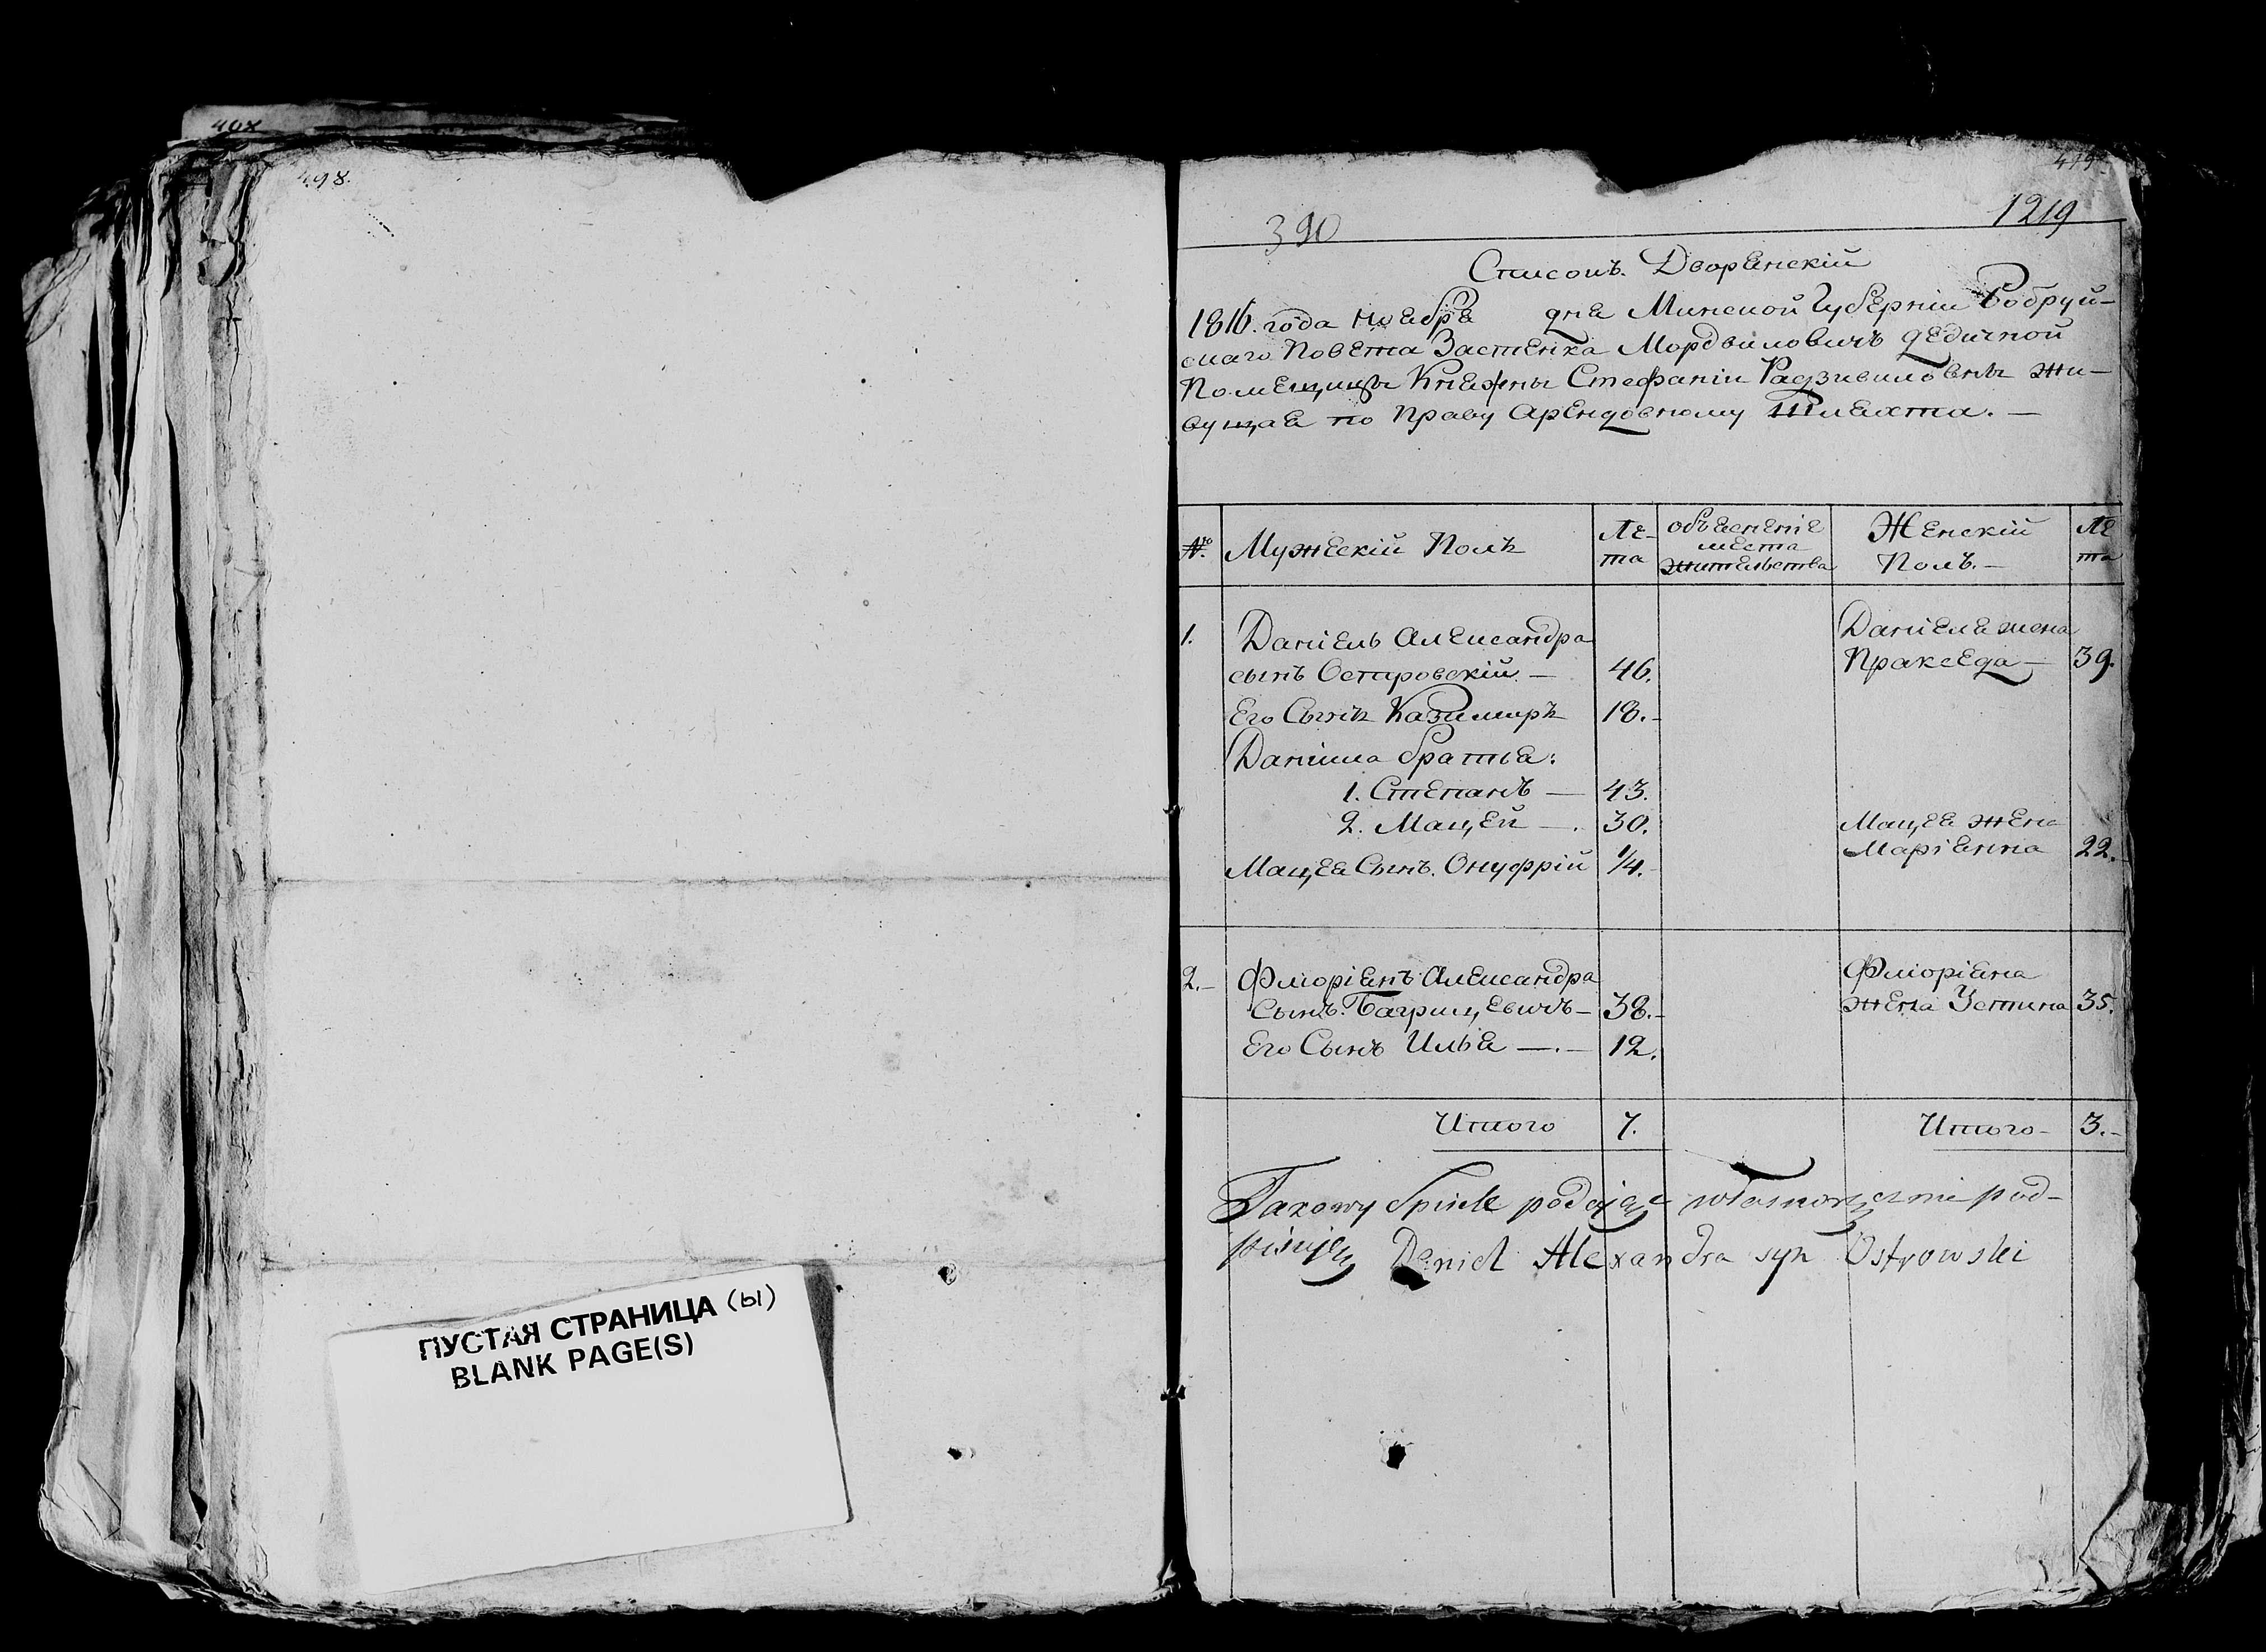 498.
ПУСТАЯ СТРАНИЦА (ы)
BLANK PAGE(S)
390
1219
Списокъ Дворянскій
1816. года ноября дня Минской Губерніи Бобруй-
скаго Повета Застенка Мордвиловичъ дедичной
Помещицы Княжны Стефаніи Радзивиловны жи-
вущая по праву Арендовному Шляхта. —
№. Мужескій Полъ Ле-та объясненіе места жительства Женскій Полъ. — Лета
1. Даніель Александра Даніеля жена
сынъ Островскій. — 46. Пракседа — 39.
Его Сынъ Казимиръ 18. -
Даніила братья:
1. Степанъ — 43.
2. Мацей — . 30. Мацея жена
Маріянна 22.
Мацея Сынъ. Онуфрій 1/4. -
2. — Флоріянъ Александра Флоріяна
Сынъ. Багрицевичъ — 38. - жена Устина 35.
Его Сынъ Илья — . — 12.
Итого 7. Итого - 3. -
Taxowy Spisek podając własnoręcznie pod-
pisuję Daniel Alexandra syn Ostrowski